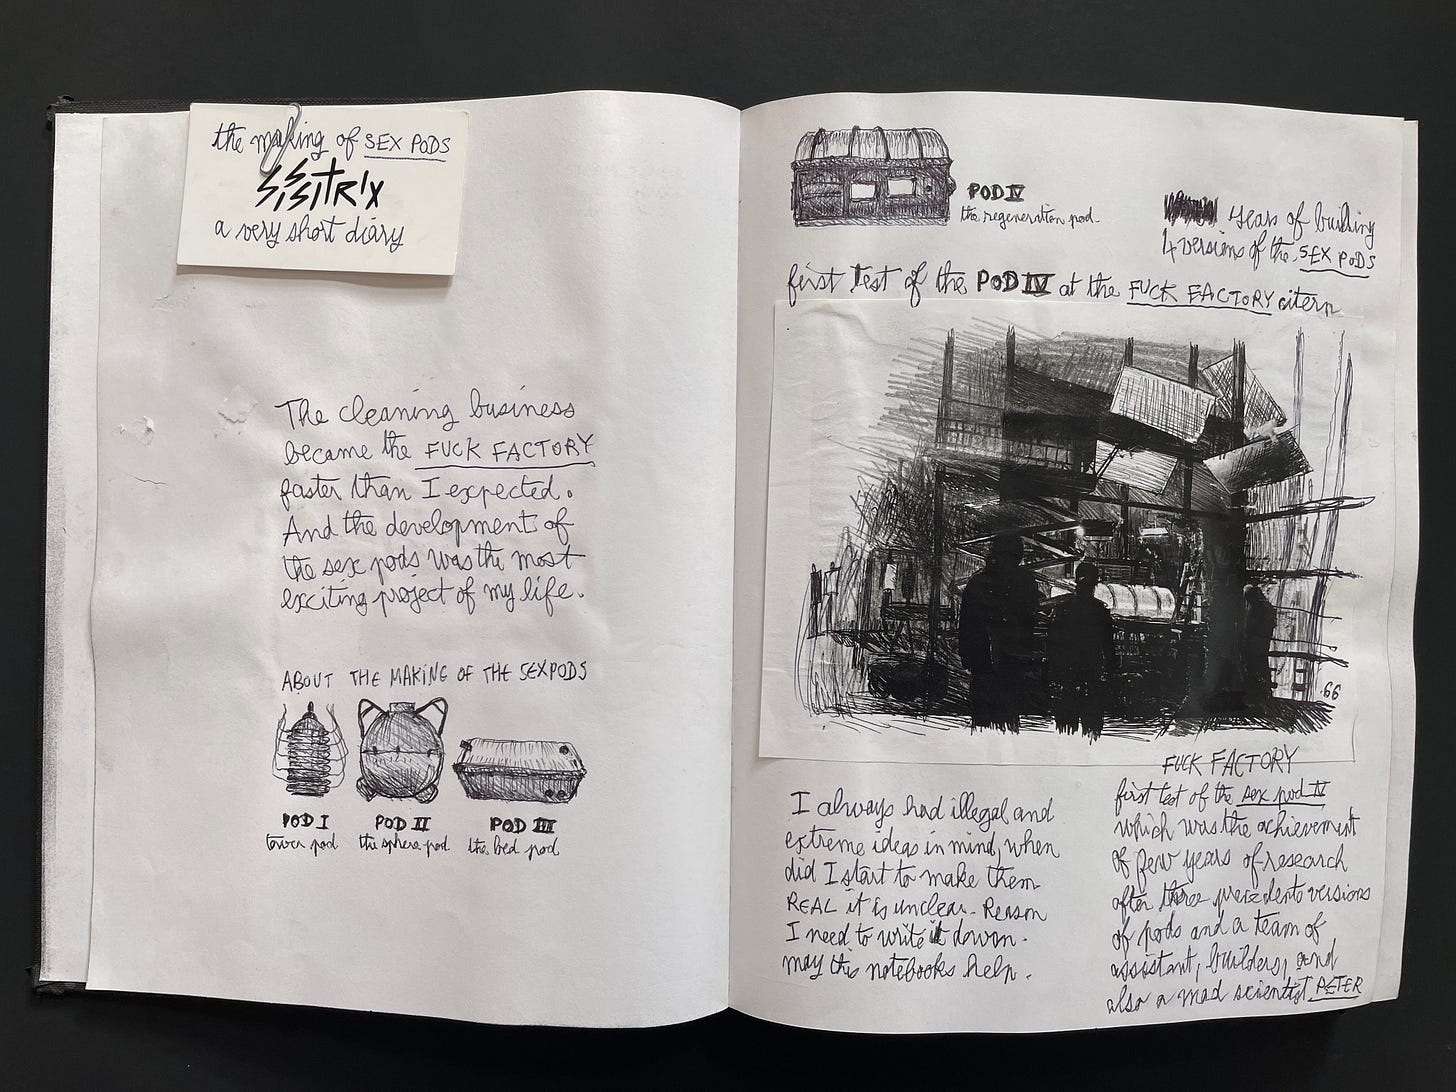 the making of SEX PODS
SISSITRIX
a very short diary
The cleaning business
became the FUCK FACTORY
faster than I expected.
And the development of
the sex pods was the most
exciting project of my life.
ABOUT THE MAKING OF THE SEXPODS
POD I
tower pod
POD II
the sphere pod
POD III
the bed pod
POD IV
the regeneration pod.
years of building
4 versions of the SEX PODS
first test of the POD IV at the FUCK FACTORY citern
66
I always had illegal and
extreme ideas in mind, when
did I start to make them
REAL it is unclear. Reason
I need to write it down.
may this notebooks help.
FUCK FACTORY
first test of the sex pod IV
which was the achievement
of few years of research
after three precedents versions
of pods and a team of
assistant, builders, and
also a mad scientist PETER